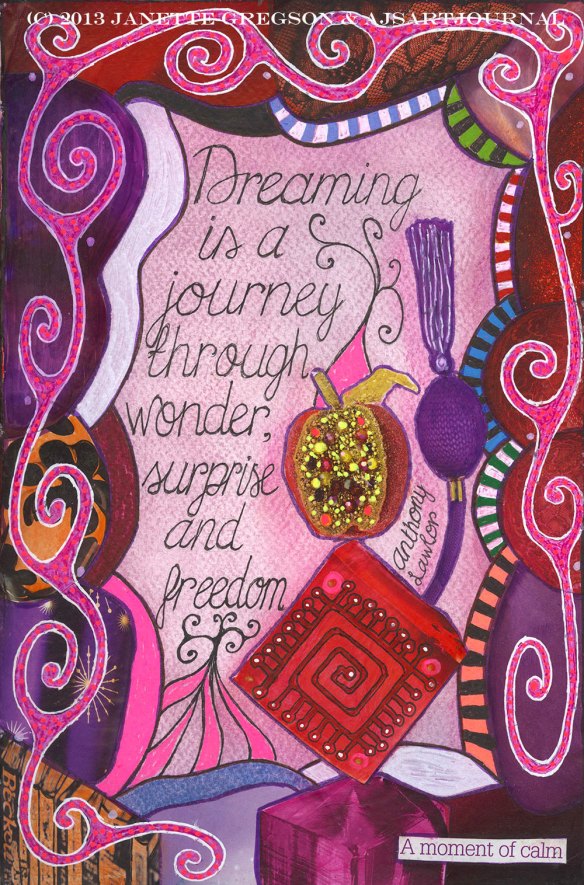 (C) 2013 JANETTE GREGSON & AJSARTJOURNAL
Dreaming
is a
journey
through
wonder,
surprise
and
freedom
Anthony
Lawlor
A moment of calm